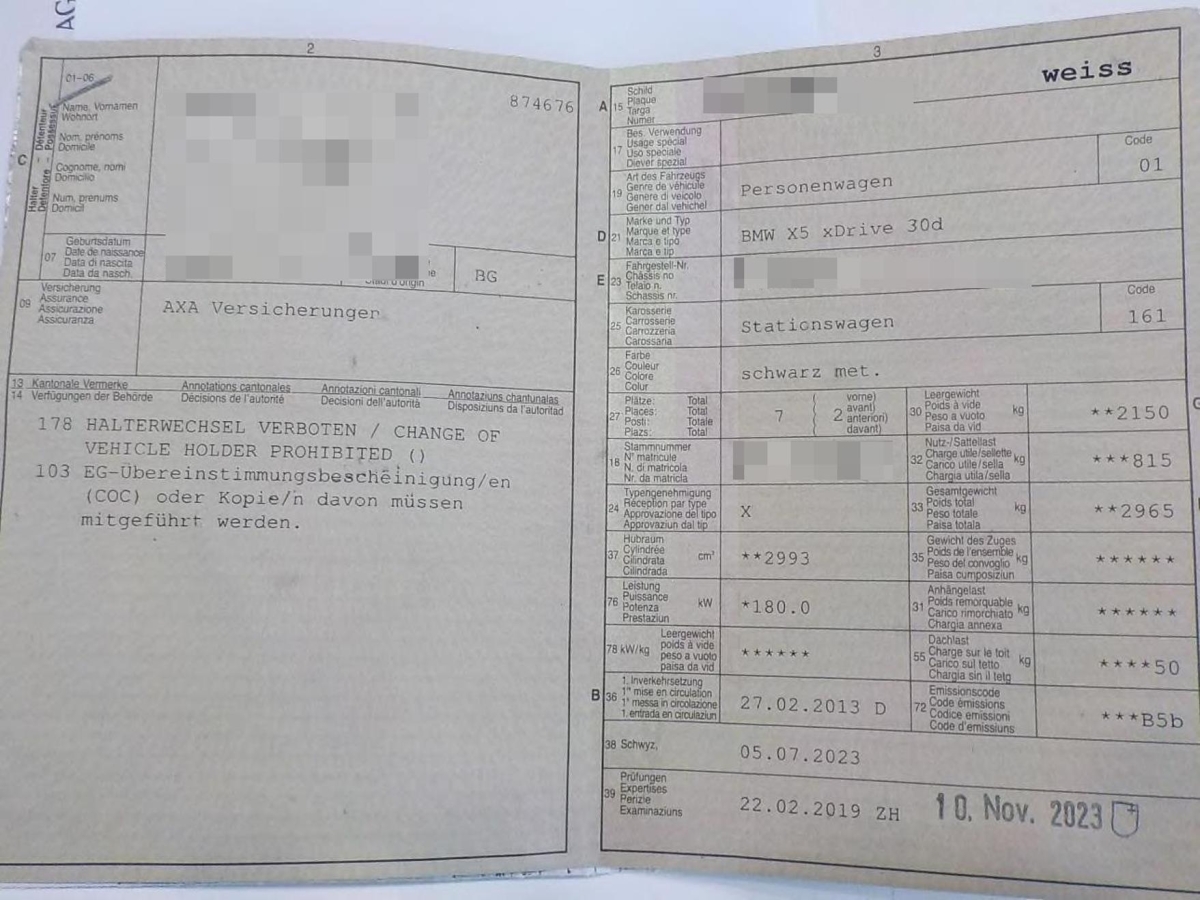 AG
2
01-06
874676
C
Halter
Détenteur
Detentore
Possessur
Name, Vornamen
Wohnort
Nom, prénoms
Domicile
Cognome, nomi
Domicilio
Num, prenums
Domicil
07
Geburtsdatum
Date de naissance
Data di nascita
Data da nasch.
BG
09
Versicherung
Assurance
Assicurazione
Assicuranza
AXA Versicherungen
13 Kantonale Vermerke Annotations cantonales Annotazioni cantonali Annotaziuns chantunalas
14 Verfügungen der Behörde Décisions de l'autorité Decisioni dell'autorità Disposiziuns da l'autoritad
178 HALTERWECHSEL VERBOTEN / CHANGE OF
VEHICLE HOLDER PROHIBITED ()
103 EG-Übereinstimmungsbescheinigung/en
(COC) oder Kopie/n davon müssen
mitgeführt werden.
3
weiss
A 15
Schild
Plaque
Targa
Numer
17
Bes. Verwendung
Usage spécial
Uso speciale
Diever spezial
19
Art des Fahrzeugs
Genre de véhicule
Genere di veicolo
Gener dal vehichel
Personenwagen
Code
01
D 21
Marke und Typ
Marque et type
Marca e tipo
Marca e tip
BMW X5 xDrive 30d
E 23
Fahrgestell-Nr.
Châssis no
Telaio n.
Schassis nr.
25
Karosserie
Carrosserie
Carrozzeria
Carossaria
Stationswagen
Code
161
26
Farbe
Couleur
Colore
Colur
schwarz met.
27
Plätze: Total
Places: Total
Posti: Totale
Plazs: Total
7
( 2 vorne)
avant)
anteriori)
davant)
30
Leergewicht
Poids à vide
Peso a vuoto
Paisa da vid
kg
**2150
18
Stammnummer
N° matricule
N. di matricola
Nr. da matricla
32
Nutz-/Sattellast
Charge utile/sellette
Carico utile/sella
Chargia utila/sella
kg
***815
24
Typengenehmigung
Réception par type
Approvazione del tipo
Approvaziun dal tip
X
33
Gesamtgewicht
Poids total
Peso totale
Paisa totala
kg
**2965
37
Hubraum
Cylindrée
Cilindrata
Cilindrada
cm³
**2993
35
Gewicht des Zuges
Poids de l'ensemble
Peso del convoglio
Paisa cumposiziun
kg
******
76
Leistung
Puissance
Potenza
Prestaziun
kW
*180.0
31
Anhängelast
Poids remorquable
Carico rimorchiato
Chargia annexa
kg
******
78 kW/kg
Leergewicht
poids à vide
peso a vuoto
paisa da vid
******
55
Dachlast
Charge sur le toit
Carico sul tetto
Chargia sin il tetg
kg
****50
B 36
1. Inverkehrsetzung
1re mise en circulation
1a messa in circolazione
1. entrada en circulaziun
27.02.2013 D
72
Emissionscode
Code émissions
Codice emissioni
Code d'emissiuns
***B5b
38 Schwyz,
05.07.2023
39
Prüfungen
Expertises
Perizie
Examinaziuns
22.02.2019 ZH
10. Nov. 2023